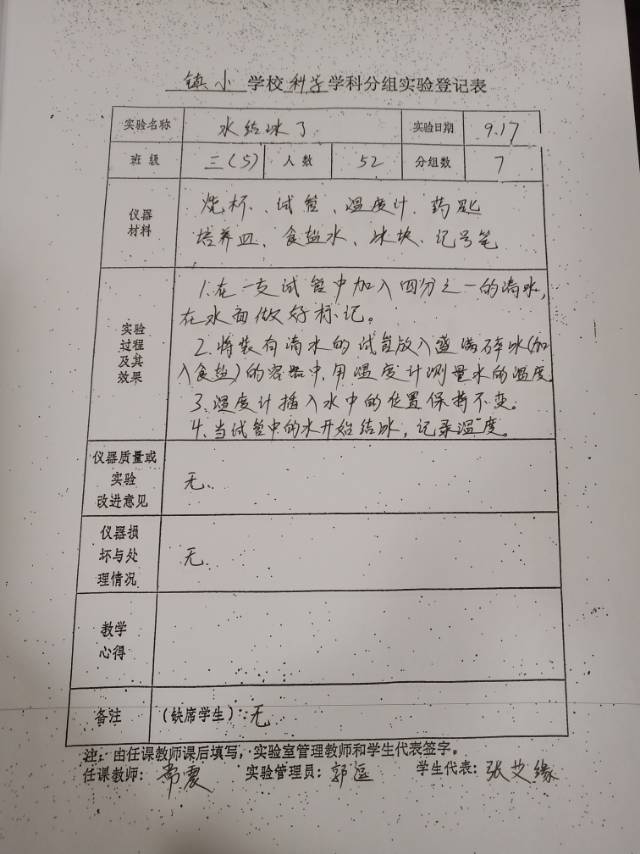 镇小学校科学学科分组实验登记表
实验名称 水结冰了 实验日期 9.17
班级 三(5) 人数 52 分组数 7
仪器材料 烧杯、试管、温度计、药匙
培养皿、食盐水、冰块、记号笔
实验过程及其效果 1.在一支试管中加入四分之一的清水,
在水面做好标记。
2.将装有清水的试管放入盛满碎冰(加
入食盐)的容器中,用温度计测量水的温度
3.温度计插入水中的位置保持不变。
4.当试管中的水开始结冰,记录温度。
仪器质量或实验改进意见 无.
仪器损坏与处理情况 无
教学心得
备注 (缺席学生):无
注:由任课教师课后填写,实验室管理教师和学生代表签字。
任课教师: 实验管理员:郭 学生代表:张艾缘